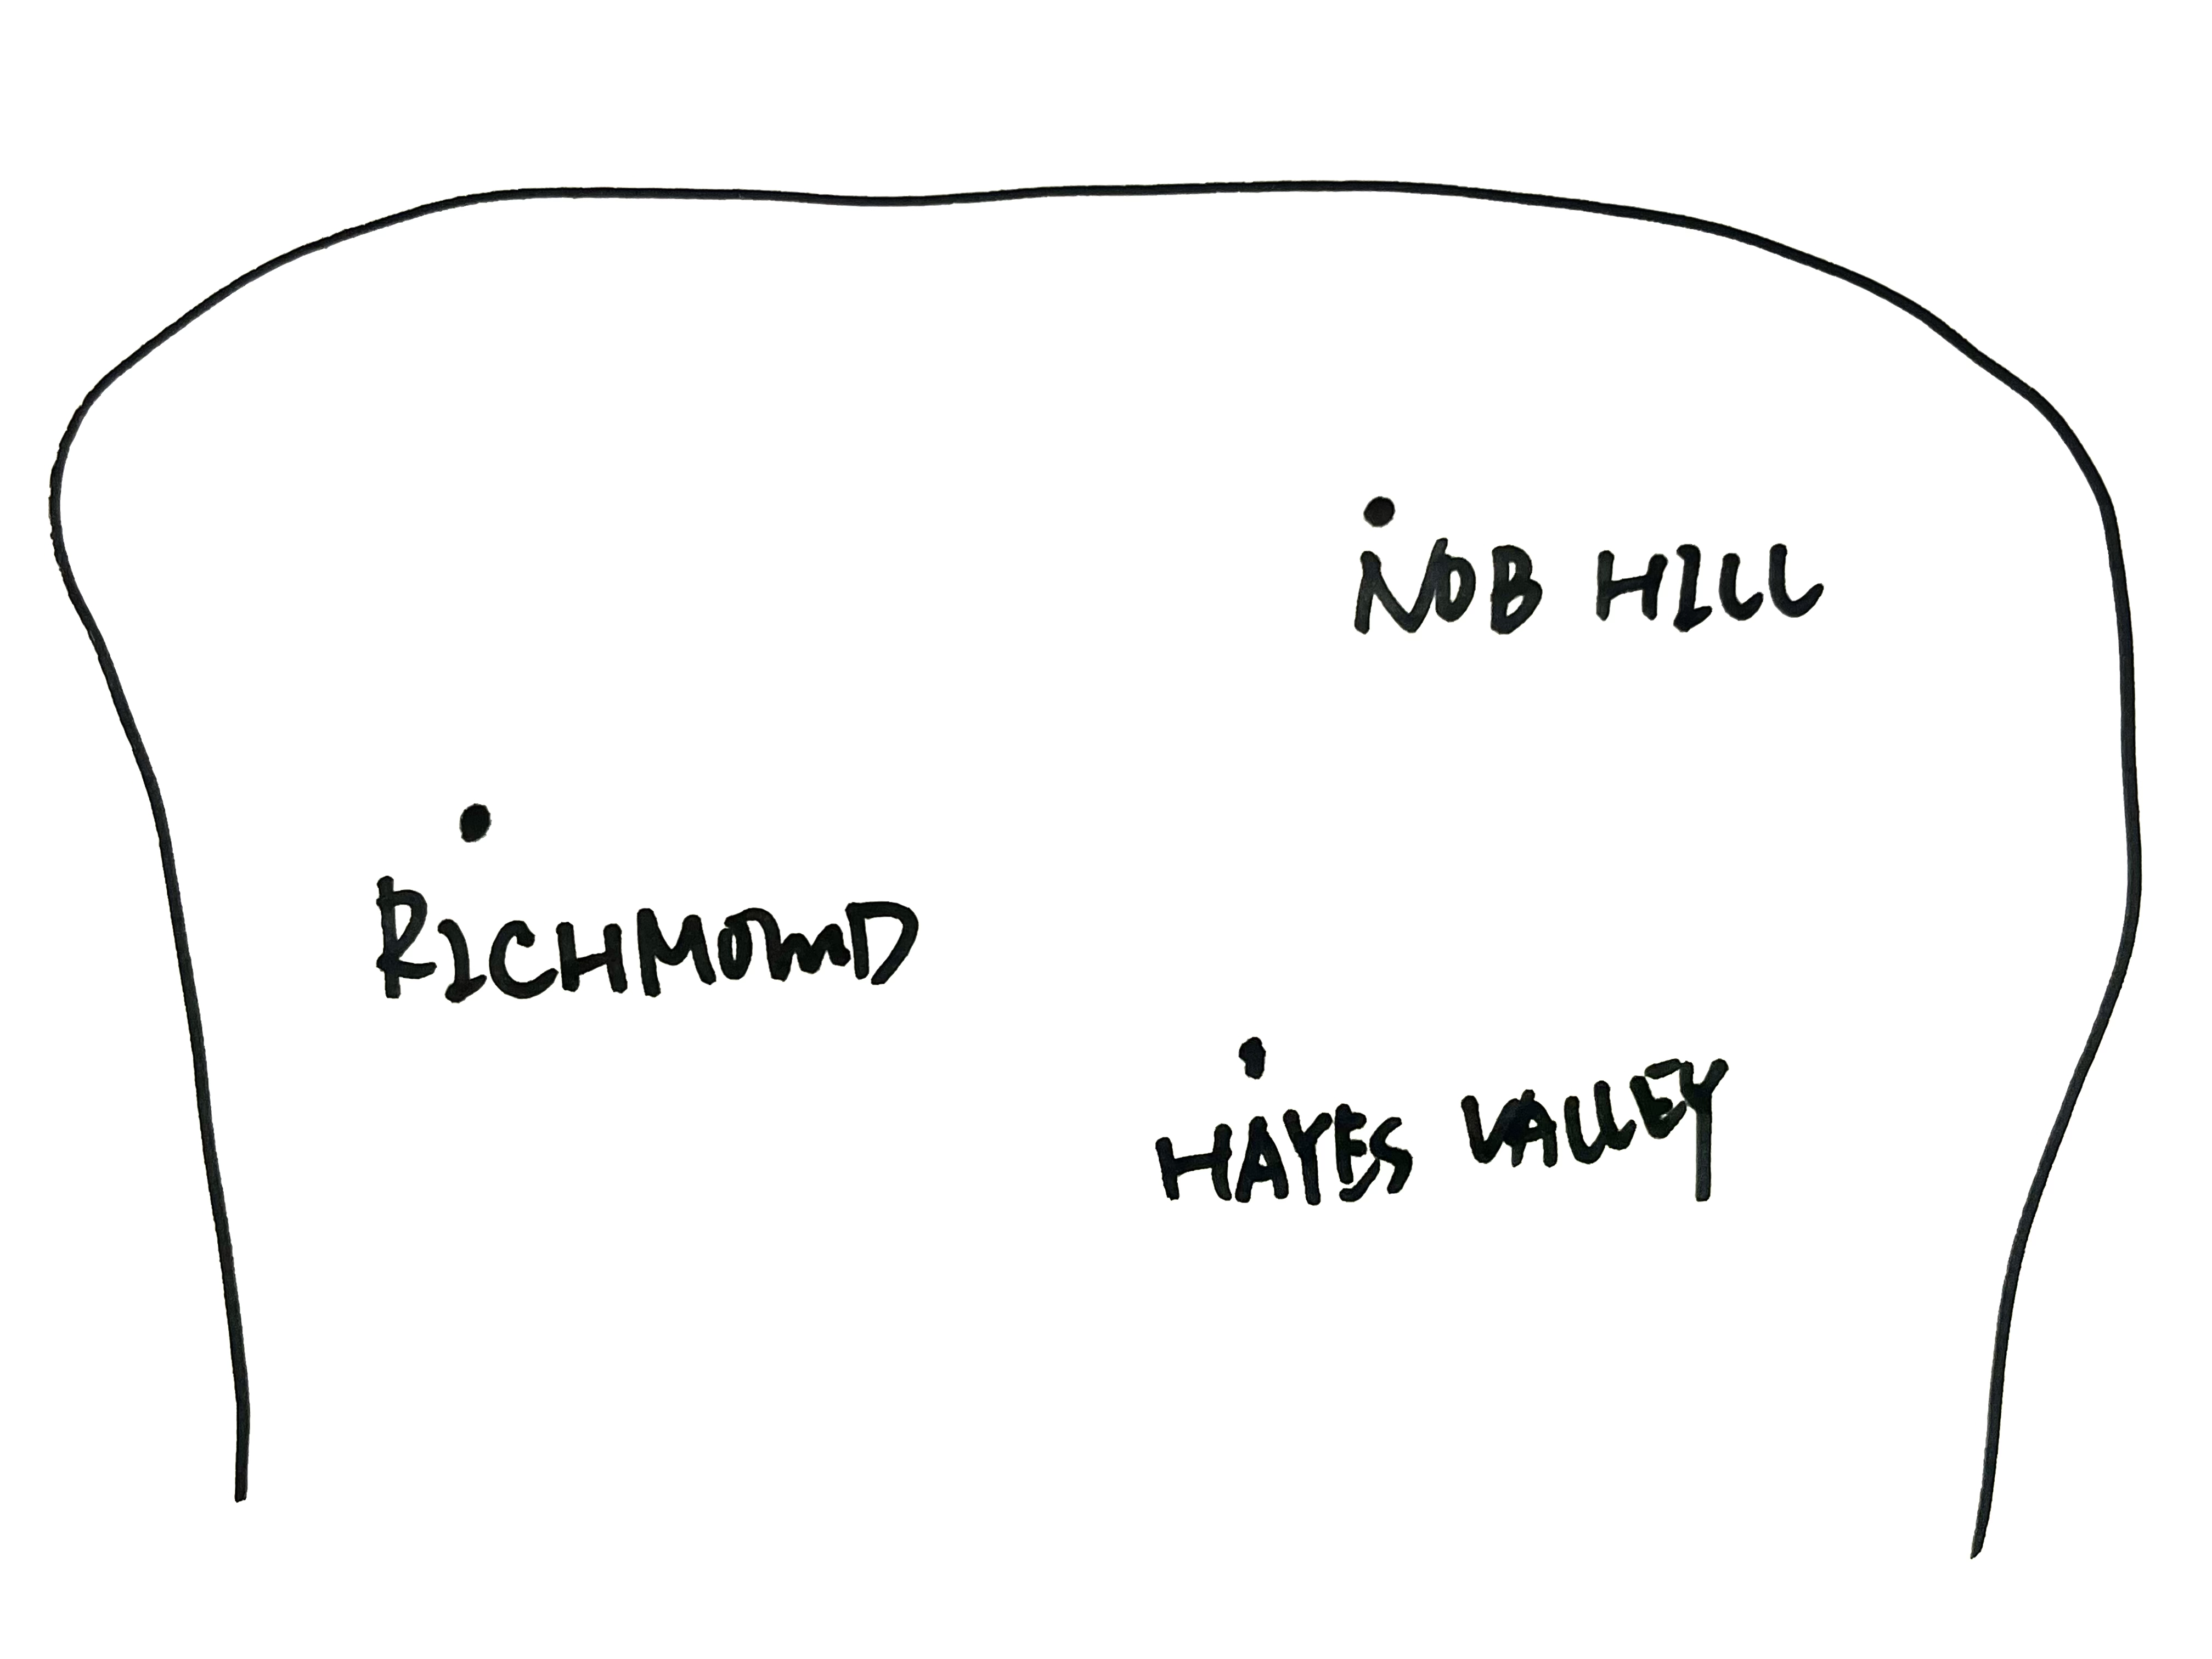 NOB HILL
RICHMOND
HAYES VALLEY